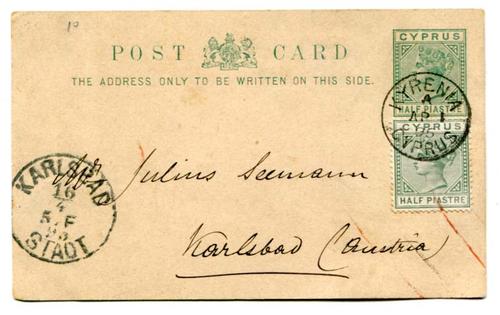 10
CYPRUS
POST CARD
THE ADDRESS ONLY TO BE WRITTEN ON THIS SIDE.
HALF PIASTRE
KYRENIA
A
AP 1
CYPRUS
CYPRUS
HALF PIASTRE
KARLSBAD
16
4
5-F
STADT
Julius Seemann
Karlsbad (Austria)